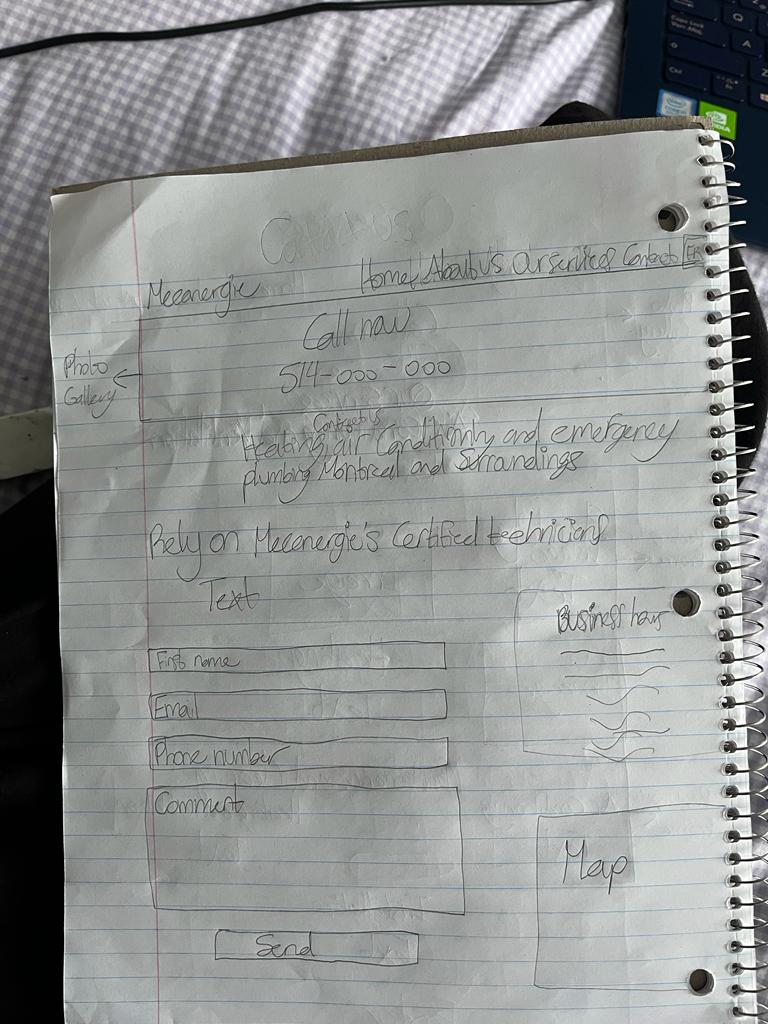 Contact us
Home About Us Our services Contact FR
Mecanergie
Call now
514-000-000
Photo
Gallery
Contact Us
Heating, air Conditionly and emergency
plumbing Montreal and Surrandings
Rely on Mecanergie's Certified technicians
Text
Business hour
First name
Email
Phone number
Comment
Map
Send